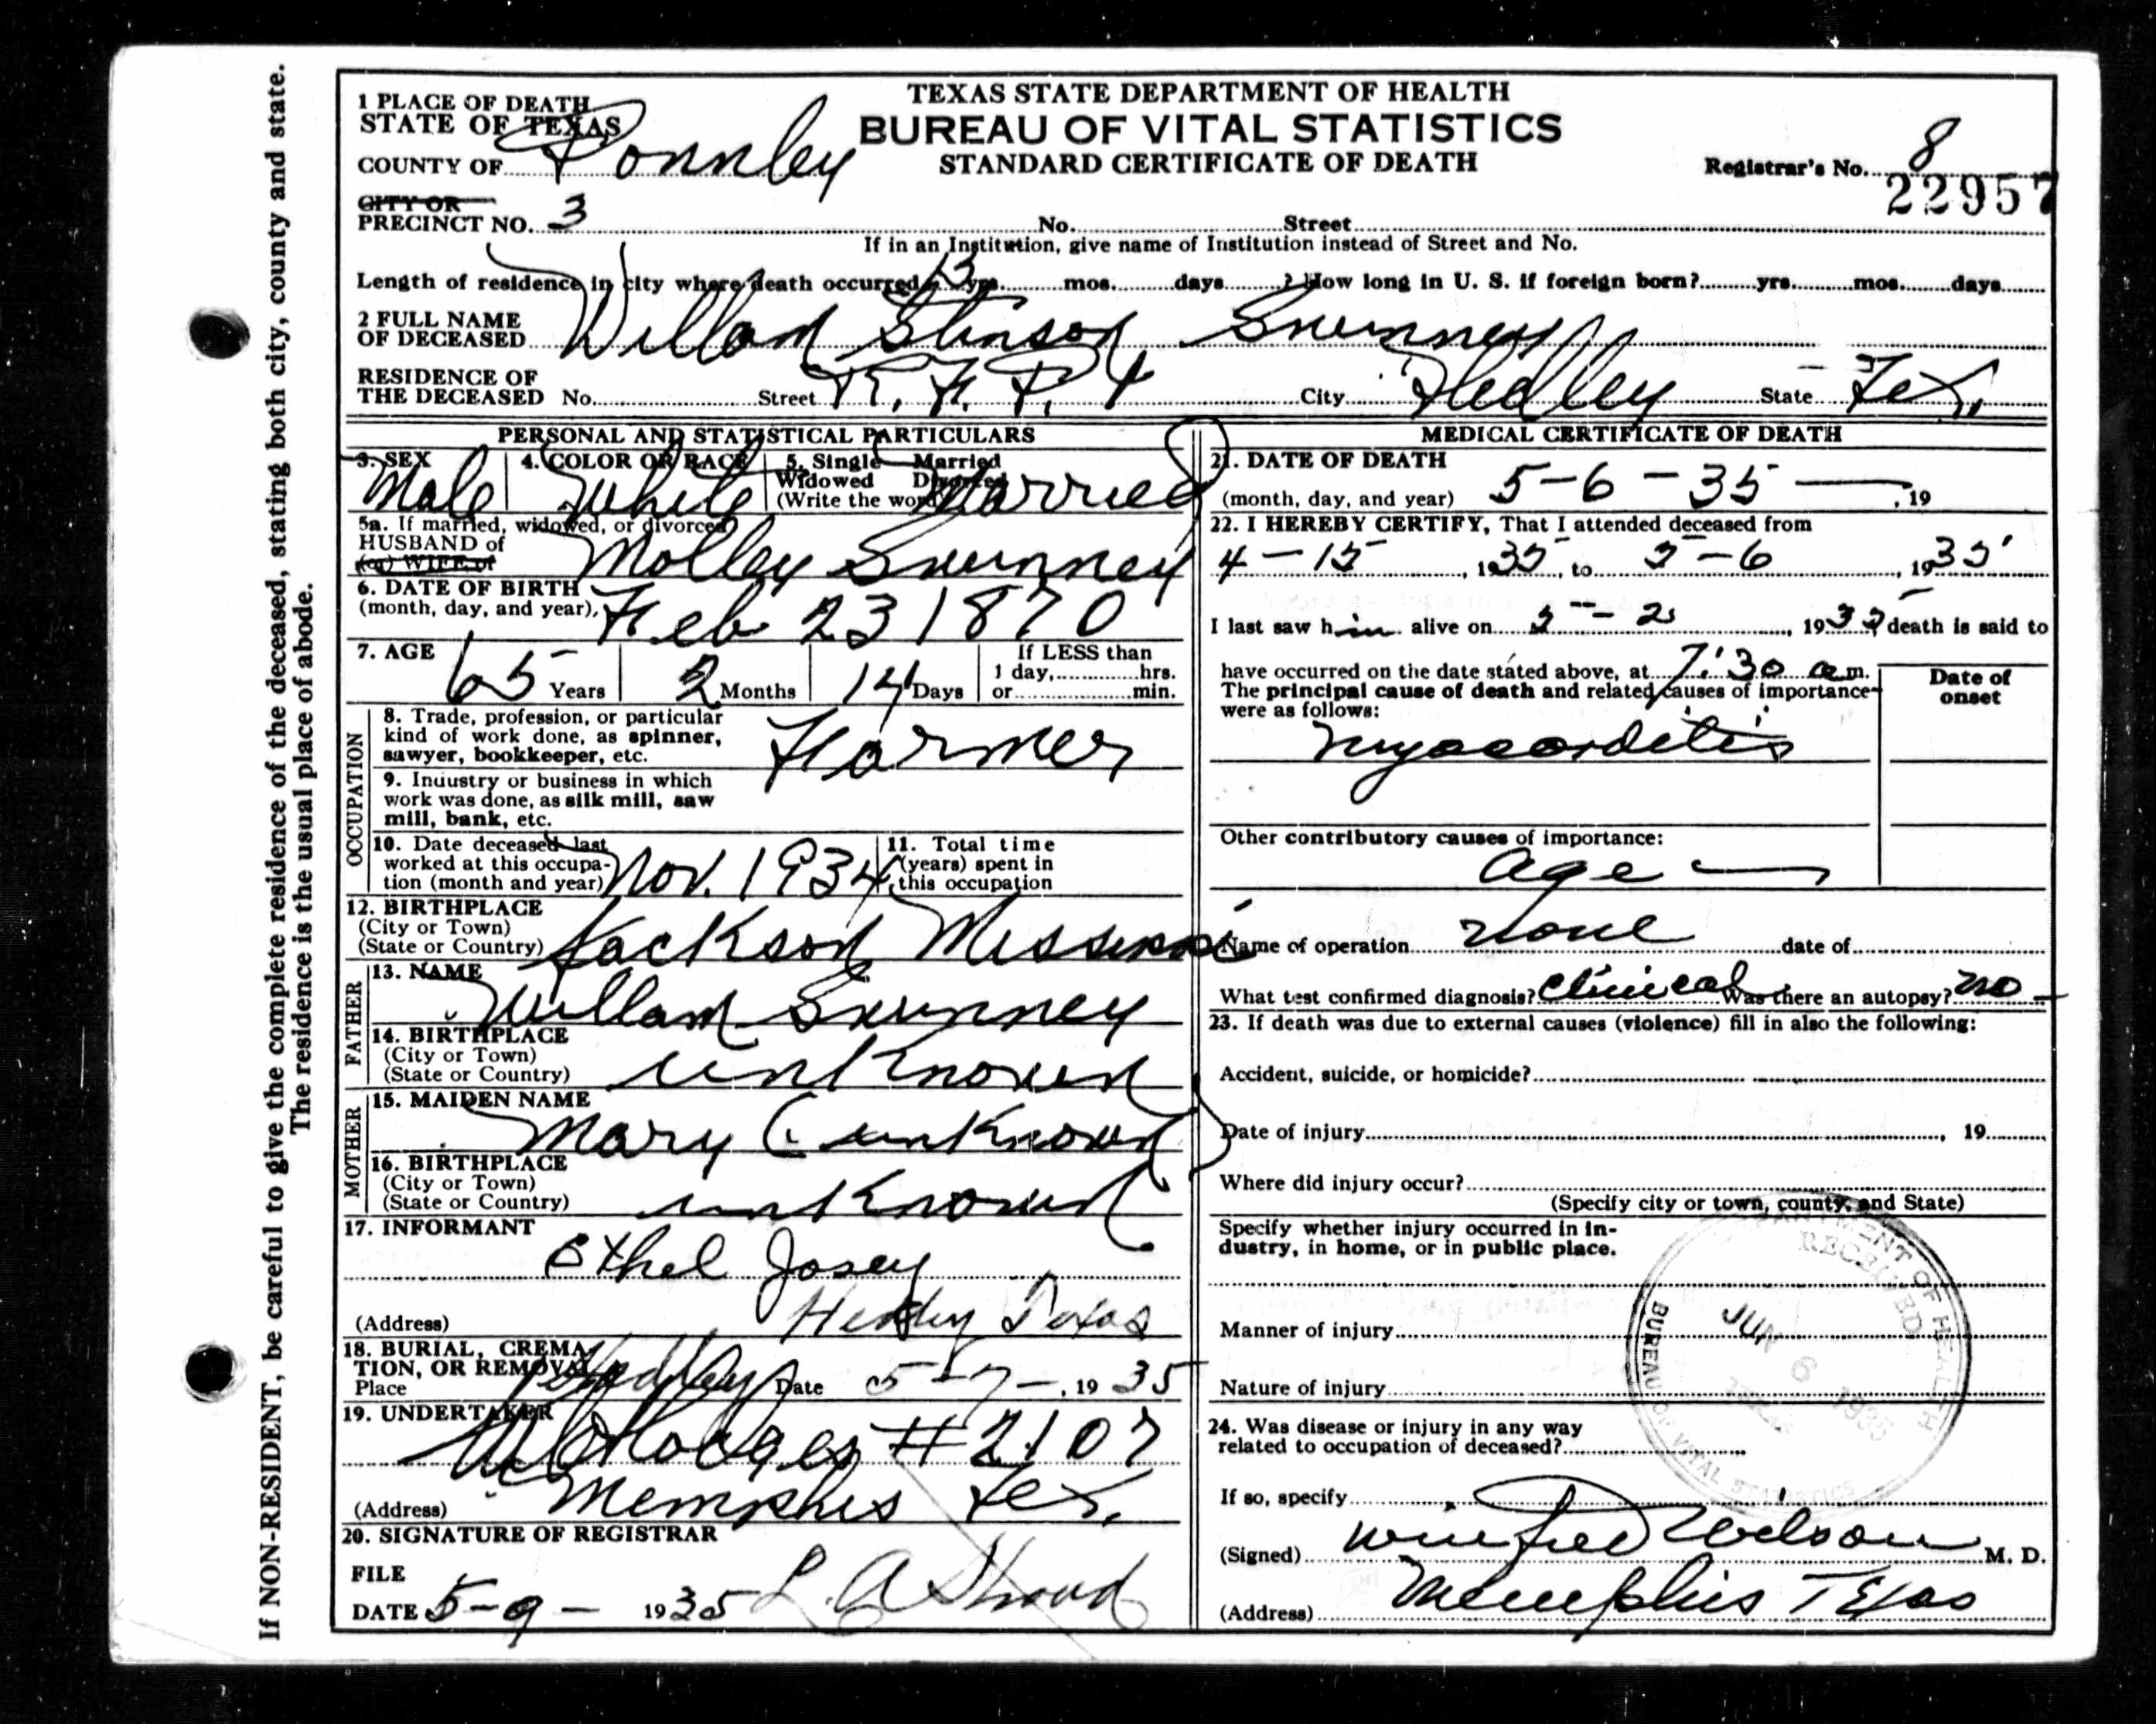 TEXAS STATE DEPARTMENT OF HEALTH
BUREAU OF VITAL STATISTICS
STANDARD CERTIFICATE OF DEATH
1 PLACE OF DEATH
STATE OF TEXAS
COUNTY OF Donnley
Registrar's No. 8
22957
CITY OR
PRECINCT NO. 3 No. Street
If in an Institution, give name of Institution instead of Street and No.
Length of residence in city where death occurred 13 yrs. mos. days ? How long in U. S. if foreign born? yrs. mos. days
2 FULL NAME
OF DECEASED Willam Stinson Swinney
RESIDENCE OF
THE DECEASED No. Street R. F. D. 1 City Hedley State Tex.
PERSONAL AND STATISTICAL PARTICULARS
3. SEX 4. COLOR OR RACE 5. Single Married
Widowed Divorced
(Write the word)
Male White Married
5a. If married, widowed, or divorced
HUSBAND of
(or) WIFE of Molley Swinney
6. DATE OF BIRTH
(month, day, and year) Feb 23 1870
7. AGE 65 Years 2 Months 14 Days
If LESS than
1 day, hrs.
or min.
OCCUPATION
8. Trade, profession, or particular
kind of work done, as spinner,
sawyer, bookkeeper, etc. Farmer
9. Industry or business in which
work was done, as silk mill, saw
mill, bank, etc.
10. Date deceased last
worked at this occupa-
tion (month and year) Nov. 1934
11. Total time
(years) spent in
this occupation
12. BIRTHPLACE
(City or Town)
(State or Country) Jackson
FATHER
13. NAME Willam Swinney
14. BIRTHPLACE
(City or Town)
(State or Country) unKnown
MOTHER
15. MAIDEN NAME
Mary C unKnown
16. BIRTHPLACE
(City or Town)
(State or Country) unKnown
17. INFORMANT
Ethel Josey
(Address) Hedley Texas
18. BURIAL, CREMA-
TION, OR REMOVAL
Place Hedley Date 5-7-, 19 35
19. UNDERTAKER
Hodges # 2107
(Address) Memphis Tex.
20. SIGNATURE OF REGISTRAR
FILE
DATE 5-9- 1935 L. A. Stroud
MEDICAL CERTIFICATE OF DEATH
21. DATE OF DEATH
(month, day, and year) 5-6-35 , 19
22. I HEREBY CERTIFY, That I attended deceased from
4-15, 1935, to 5-6, 1935
I last saw him alive on 5-2, 1935 death is said to
have occurred on the date stated above, at 7:30 a.m.
The principal cause of death and related causes of importance
were as follows:
Date of
onset
Myocarditis
Other contributory causes of importance:
age
Name of operation none date of
What test confirmed diagnosis? Clinical Was there an autopsy? no
23. If death was due to external causes (violence) fill in also the following:
Accident, suicide, or homicide?
Date of injury , 19
Where did injury occur?
(Specify city or town, county, and State)
Specify whether injury occurred in in-
dustry, in home, or in public place.
Manner of injury
Nature of injury
24. Was disease or injury in any way
related to occupation of deceased?
If so, specify
(Signed) Winfred Wilson M. D.
(Address) Memphis Texas
DEPARTMENT OF HEALTH
RECEIVED
JUN 6 1935
TEXAS
BUREAU OF VITAL STATISTICS
If NON-RESIDENT, be careful to give the complete residence of the deceased, stating both city, county and state.
The residence is the usual place of abode.